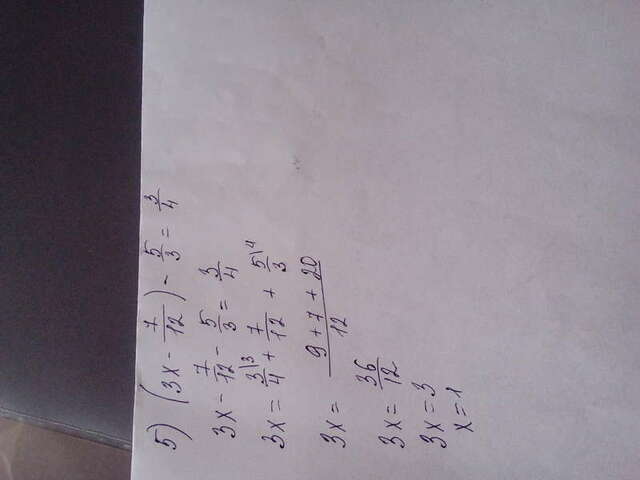 5) (3x - 7/12) - 5/3 = 3/4
3x - 7/12 - 5/3 = 3/4
3x = 3/4\3 + 7/12 + 5/3\4
3x = 9+7+20/12
3x = 36/12
3x = 3
x = 1